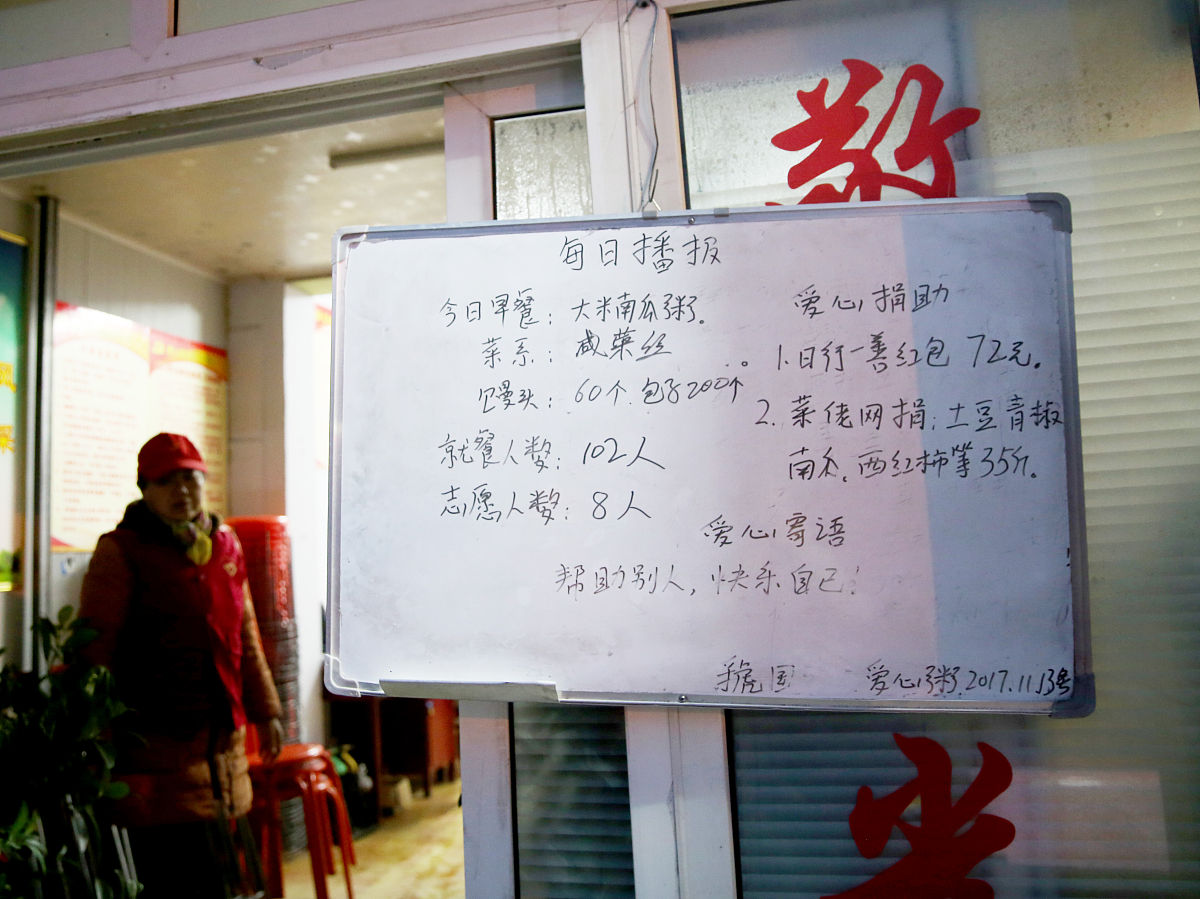 敬
每日播报
今日早餐：大米南瓜粥。
菜系：咸菜丝
馒头：60个 包子200个
就餐人数：102人
志愿人数：8人
爱心捐助
1.日行一善红包 72元。
2.菜佬网捐：土豆青椒
南瓜.西红柿等35斤.
爱心寄语
帮助别人，快乐自己！
国 爱心粥 2017.11.13号